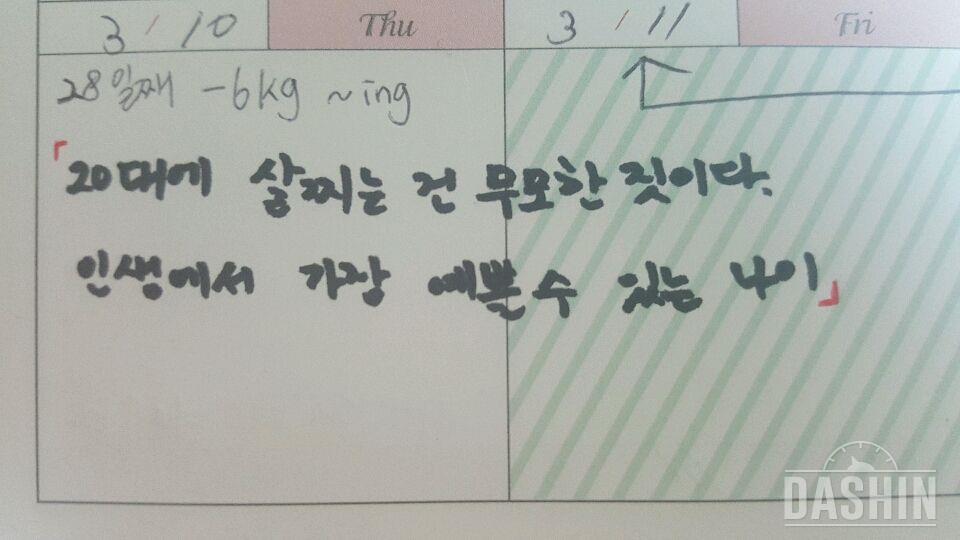 3 / 10 Thu 3 / 11 Fri
28일째 -6kg ~ing
「20대에 살찌는 건 무모한 짓이다.
인생에서 가장 예쁠 수 있는 나이」
DASHIN